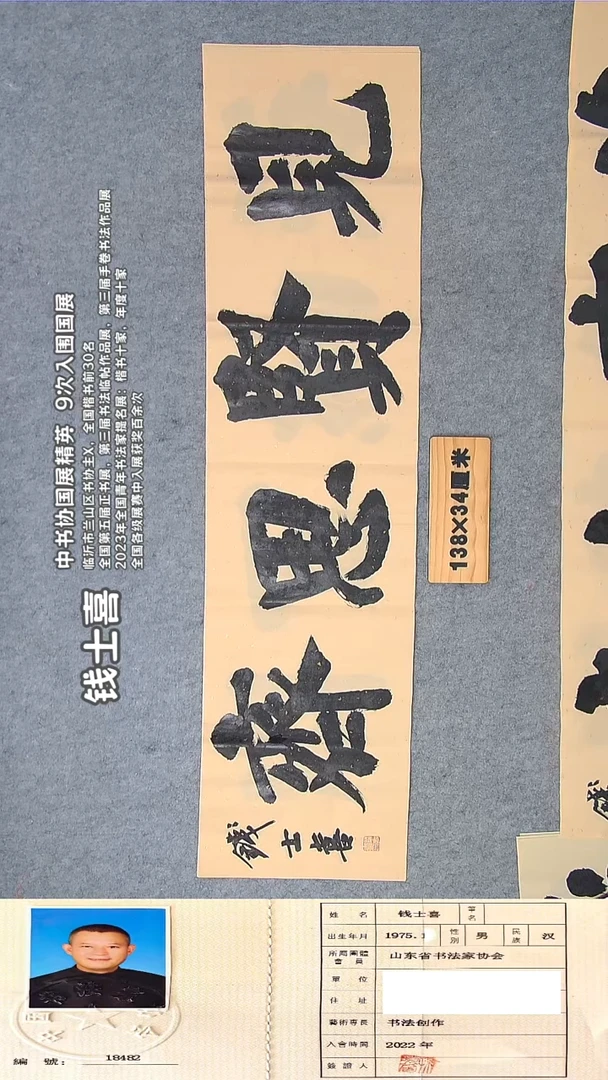 钱士喜
中书协国展精英 9次入围国展
临沂市兰山区书协主X,全国楷书前30名
全国第五届正书展,第三届书法临帖作品展,第三届手卷书法作品展
2023年全国青年书法家提名展:楷书十家,年度十家
全国各级展赛中入展获奖百余次
見賢思齊
錢士喜
138×34厘米
編 號: 18482
姓 名 钱士喜 筆名
出生年月 1975. 性別 男 民族 汉
所屬團體會員 山东省书法家协会
單 位
住 址
藝術專長 书法创作
入會時間 2022年
簽證人